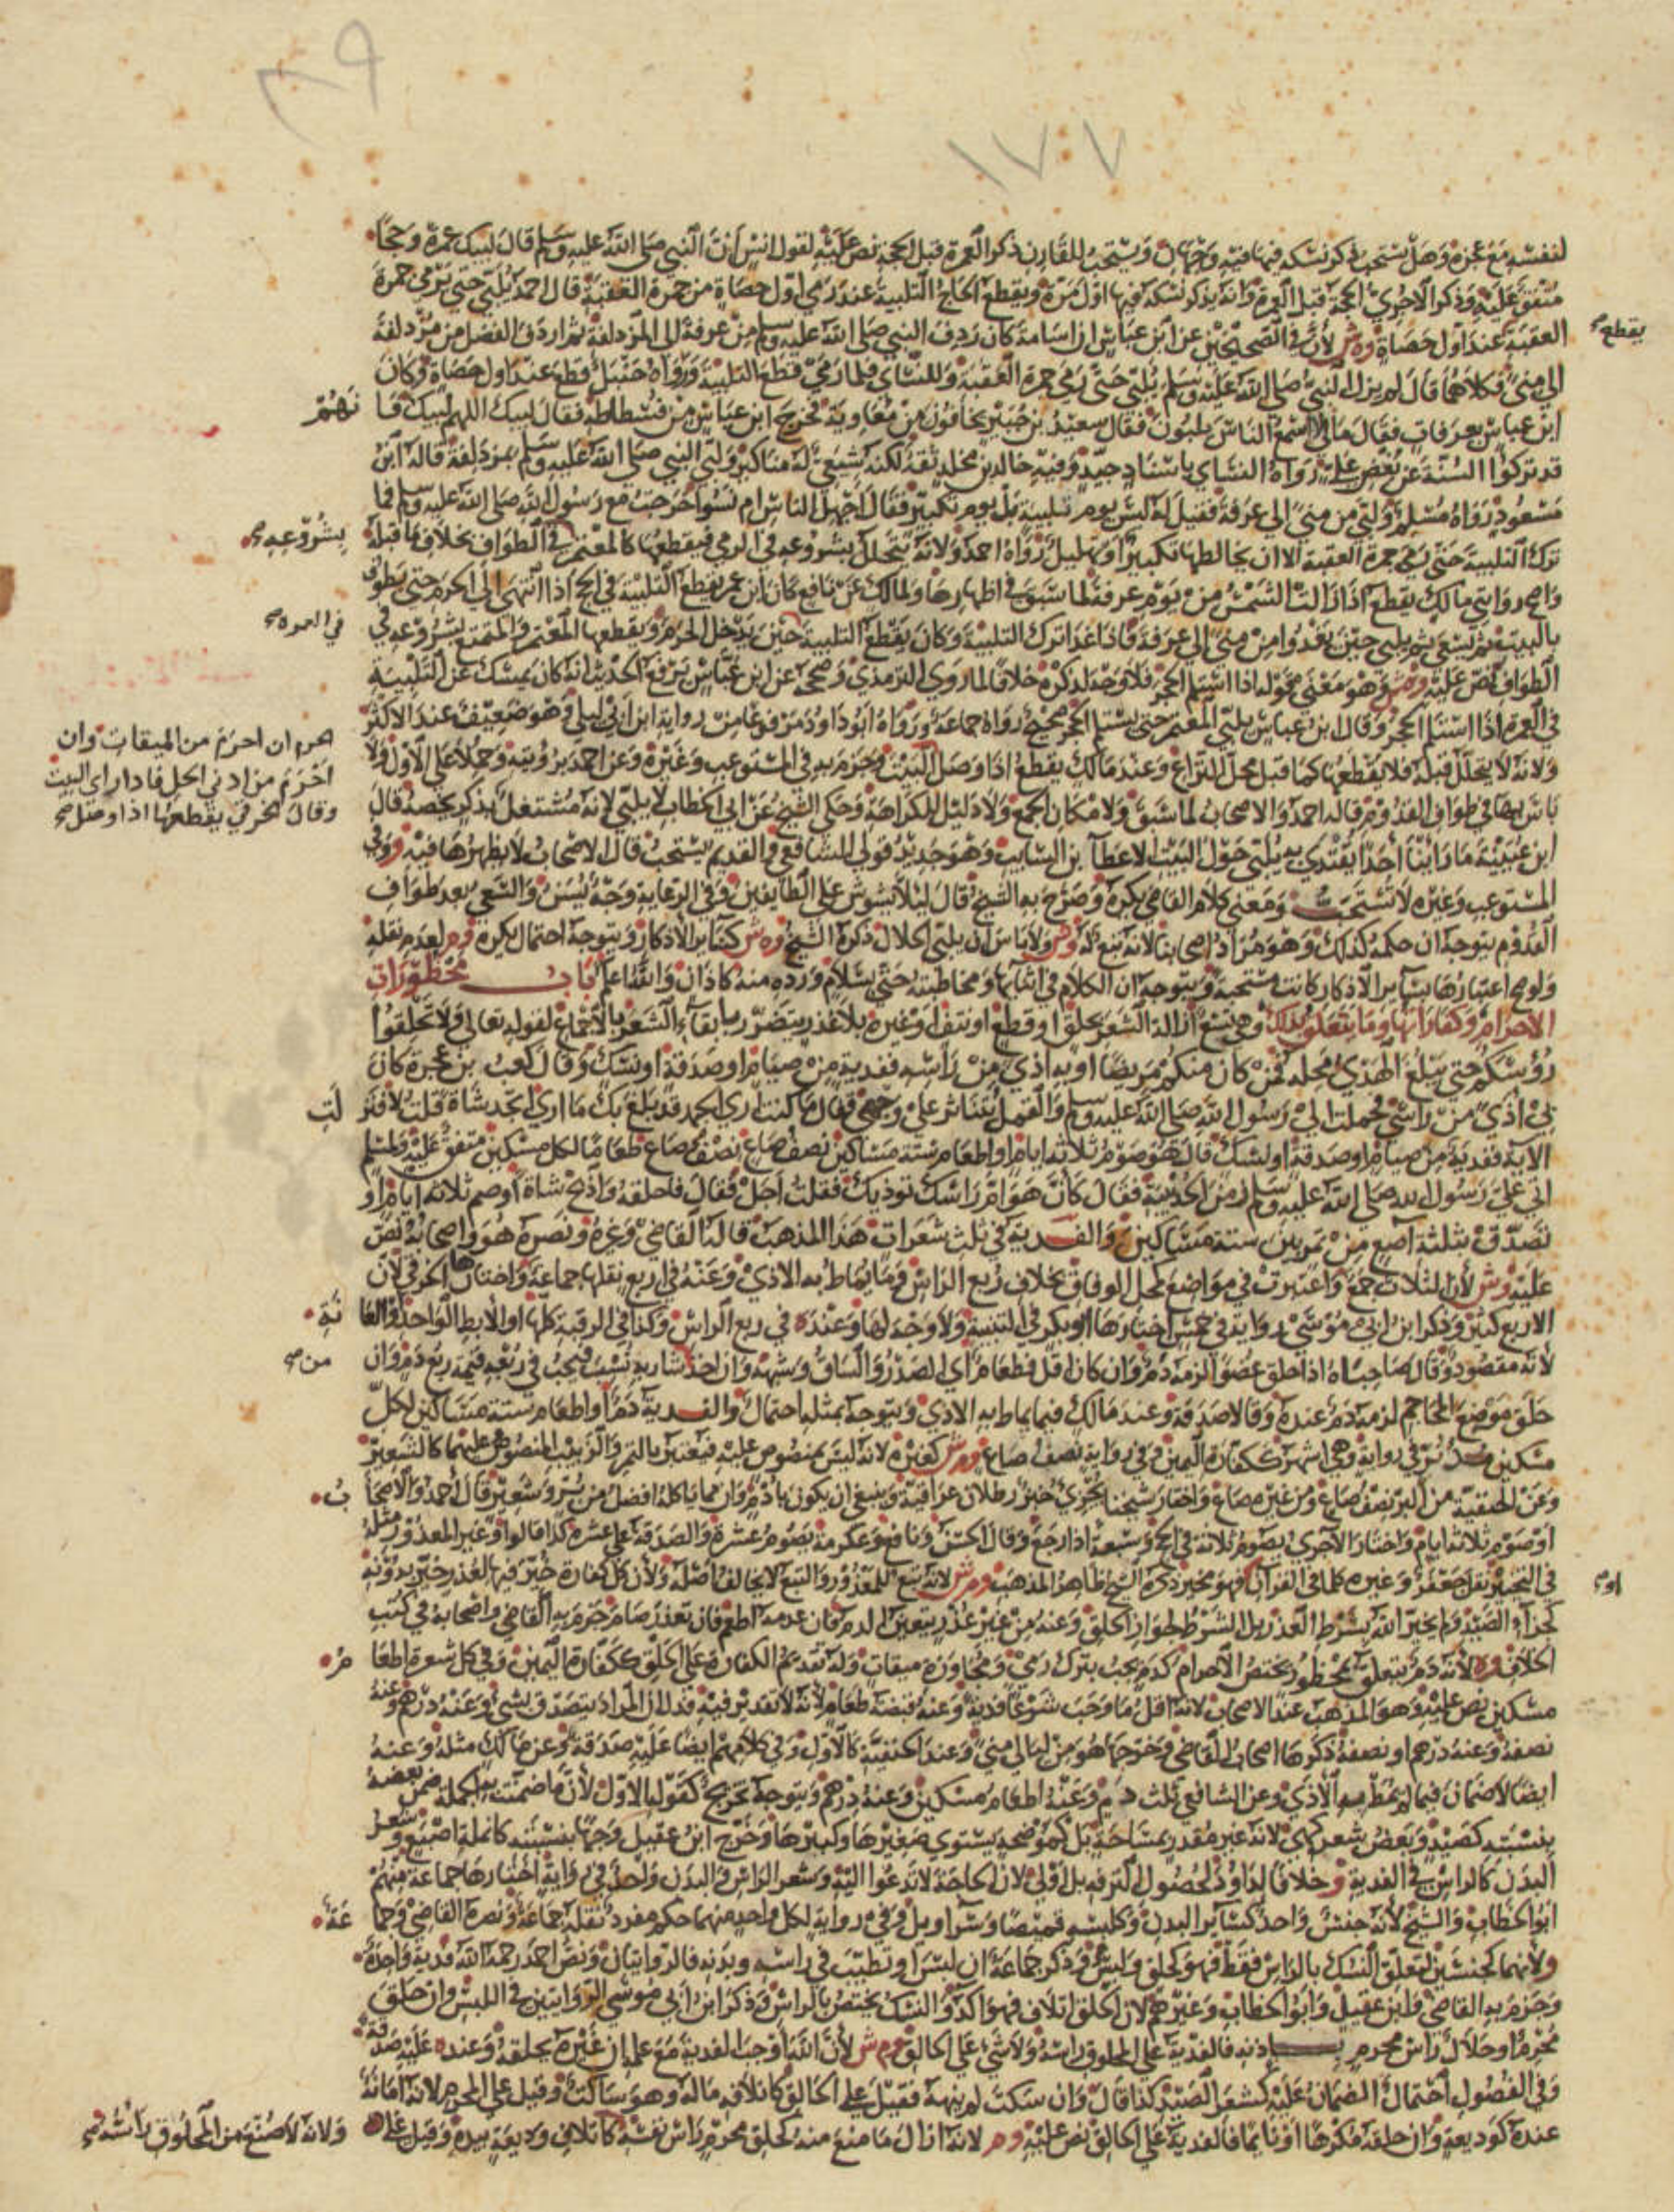 ٣٩
١٧٠٧
لنفسه مع غيره وهل يستحب ذكر نسكه فيها فيه وجهان ويستحب للقارن ذكر العمرة قبل الحجة نص عليه لقول انس ان النبي صلى الله عليه وسلم قال لبيك عمرة وحجا
متفق عليه وذكر الاجري الحجة قبل العمرة وانه يذكر نسكه فيها اول مرة ويقطع الحاج التلبية عند رمي اول حصاة من جمرة العقبة قال احمد يلبي حتى يرمي جمرة
العقبة عند اول حصاة وه ش لأن في الصحيحين عن ابن عباس ان اسامة كان ردف النبي صلى الله عليه وسلم من عرفة الى المزدلفة ثم اردف الفضل من مزدلفة
يقطع صح
الى منى فكلاهما قال لم يزل النبي صلى الله عليه وسلم يلبي حتى رمى جمرة العقبة وللنسائي فلما رمى قطع التلبية ورواه حنبل قطع عند اول حصاة وكان
ابن عباس بعرفات فقال مالي لا اسمع الناس يلبون فقال سعيد بن جبير يخافون من معاوية فخرج ابن عباس من فسطاطه فقال لبيك اللهم لبيك فا نهم
قد تركوا السنة عن بغض علي رواه النسائي باسناد جيد وفيه خالد بن مخلد ثقة لكنه شيعي له مناكير ولبى النبي صلى الله عليه وسلم بمزدلفة قاله ابن
مسعود رواه مسلم ولبى من منى الى عرفة فقيل له ليس يوم تلبية بل يوم تكبير فقال اجهل الناس ام نسوا خرجت مع رسول الله صلى الله عليه وسلم فما
ترك التلبية حتى رمى جمرة العقبة الا ان يخالطها تكبير او تهليل رواه احمد ولانه يتحلل بشروعه في الرمي فيقطعها كالمعتمر في الطواف بخلاف ما قبله
بشروعه صح
واصح روايتي مالك يقطع اذا زالت الشمس من يوم عرفة لما سبق في اظهارها ولمالك عن نافع كان ابن عمر يقطع التلبية في الحج اذا انتهى الى الحرم حتى يطوف
بالبيت ثم يسعى ثم يلبي حتى يغدوا من منى الى عرفة فاذا غدا ترك التلبية وكان يقطع التلبية حين يدخل الحرم ويقطعها المعتمر والمتمتع بشروعه في
في العمرة صح
الطواف نص عليه وهو معنى قوله اذا استلم الحجر فلا وجه لذكره خلافا لما روى الترمذي وصححه عن ابن عباس يرفع الحديث انه كان يمسك عن التلبية
في العمرة اذا استلم الحجر وقال ابن عباس يلبي المعتمر حتى يستلم الحجر صحيح رواه جماعة ورواه ابو داود مرفوعا من رواية ابن ابي ليلى وهو ضعيف عند الاكثر
ولانه لا يتحلل قبله فلا يقطعها كما قبل محل النزاع وعند مالك يقطع اذا وصل البيت وجزم به في المستوعب وغيره وعن احمد برؤيته وحملا على الاول ولا
احرم ان احرم من الميقات وان
احرم من ادنى الحل فاذا راى البيت
وقال الخرقي يقطعها اذا وصل صح
باس بها في طواف القدوم قاله احمد والاصحاب لما سبق ولامكان الجمع ولا دليل للكراهة وحكى الشيخ عن ابي الخطاب لا يلبي لانه مشتغل بذكر يخصه قال
ابن عيينة ما راينا احدا يقتدى به يلبي حول البيت الا عطاء بن السايب وهو جديد قولي الشافعي والقديم يستحب قال الاصحاب لا يظهرها فيه وفي
المستوعب وغيره لا تستحب ومعنى كلام القاضي يكره وصرح به الشيخ قال ليلا يشوش على الطايفين وفي الرعاية وجه يسن والسعي بعد طواف
القدوم يتوجه ان حكمه كذلك وهو مراد اصحابنا لانه تبع له ولا باس ان يلبي الحلال ذكره الشيخ وه ش كساير الاذكار ويتوجه احتمال يكره وم لعدم نقله
ولو صح اعتبارها بساير الاذكار كانت مستحبة ويتوجه ان الكلام في اثنائها ومخاطبته حتى بسلام ورده منه كاذان والله اعلم باب محظورات
الاحرام وكفاراتها وما يتعلق بذلك وهي تسع ازالة الشعر بحلق او قطع او نتف او غيره بلا عذر يتضرر بابقاء الشعر بالاجماع لقوله تعالى ولا تحلقوا
رؤسكم حتى يبلغ الهدي محله فمن كان منكم مريضا او به اذى من راسه ففدية من صيام او صدقة او نسك وقال كعب بن عجرة كان
بي اذى من راسي فحملت الى رسول الله صلى الله عليه وسلم والقمل يتناثر على وجهي فقال ما كنت ارى الجهد قد بلغ بك ما ارى اتجد شاة قلت لا فنز لت
الآية ففدية من صيام او صدقة او نسك قال هو صوم ثلاثة ايام او اطعام ستة مساكين نصف صاع نصف صاع طعاما لكل مسكين متفق عليه ولمسلم
اتى علي رسول الله صلى الله عليه وسلم زمن الحديبية فقال كأن هوام راسك توذيك فقلت اجل فقال فاحلقه واذبح شاة او صم ثلاثة ايام او
تصدق بثلثة آصع من تمر بين ستة مساكين والفدية في ثلث شعرات هذا المذهب قاله القاضي وغيره ونصره هو واصحابه نص
عليه وش لأن الثلاث جمع واعتبرت في مواضع كمحل الوفاق بخلاف ربع الراس وما يماط به الاذى وعنه في اربع نقلها جماعة واختارها الخرقي لأن
الاربع كثير وذكر ابن ابي موسى رواية في خمس اختارها ابو بكر في التنبيه ولا وجه لها وعنده في ربع الراس وكذا في الرقبة كلها او الابط الواحد والعا نة
لانه مقصود وقال صاحباه اذا حلق عضوا لزمه دم وان كان اقل فطعام اي الصدر والساق وشبهه وان اخذ شاربه نسب فيجب في ربعه قيمة ربع دم وان
من صح
حلق موضع المحاجم لزمه دم عنده وقالا صدقة وعند مالك فيما يماط به الاذى ويتوجه بمثله احتمال والفدية دم او اطعام ستة مساكين لكل
مسكين مد بر في رواية وهي اشهر ككفارة اليمين وفي رواية نصف صاع وم ش كغيره لانه ليس بمنصوص عليه فيعتبر بالتمر والزبيب المنصوص عليهما كالشعير
وعن الحنفية من البر نصف صاع ومن غيره صاع واختار شيخنا يجزي خبز رطلان عراقية وينبغي ان يكون بادم وان مما ياكله افضل من بر وشعير قال احمد والاصحا ب
او صوم ثلاثة ايام واختار الآجري يصوم ثلاثة في الحج وسبعة اذا رجع وقال الحسن ونافع وعكرمة يصوم عشرة والصدقة على عشرة كذا قالوا وغير المعذور مثله
في التخيير نقل جعفر وغيره كلما في القرآن او فهو مخير ذكره الشيخ ظاهر المذهب وم ش لانه تبع للمعذور والتبع لا يخالف اصله ولأن كل كفارة خير فيها لعذر خير بدونه
او صح
كجزاء الصيد ولم يخير الله بشرط العذر بل الشرط لجواز الحلق وعنه من غير عذر يتعين الدم فان عدمه اطعم فان تعذر صام جزم به القاضي واصحابه في كتب
الخلاف وه لأنه دم يتعلق بمحظور يختص الاحرام كدم يجب بترك رمي ومجاوزة ميقات وله تقديم الكفارة على الحلق ككفارة اليمين وفي كل شعرة اطعا م
مسكين نص عليه وهو المذهب عند الاصحاب لانه اقل ما وجب شرعا فدية وعنه قبضة طعام لأنه لا تقدير فيه فدل ان المراد يتصدق بشيء وعنه درهم وعنه
نصفه وعنه درهم او نصفه ذكرها اصحاب القاضي وخرجها هو من ليالي منى وعند الحنفية كالاول وفي كلامهم ايضا عليه صدقة وعن مالك مثله وعنه
ايضا لا ضمان فيما لم يمط به الاذى وعن الشافعي ثلث دم وعنه اطعام مسكين وعنه درهم ويتوجه تخريج كقوله الاول لأن ما ضمنت به الجملة ضمن بعضه
بنسبته كصيد وبعض شعر كهي لانه غير مقدر بمساحة بل كموضحة يستوي صغيرها وكبيرها وخرج ابن عقيل وجها بنسبته كانملة اصبع وشعر
البدن كالراس في الفدية وخلافا لداود لحصول الترفه بل اولى لان الحاجة لا تدعوا اليه وشعر الراس والبدن واحد في رواية اختارها جماعة منهم
ابو الخطاب والشيخ لأنه جنس واحد كساير البدن وكلبسه قميصا وسراويل وفي رواية لكل واحد منهما حكم مفرد نقله جماعة ونصره القاضي وجما عة
ولانهما كجنسين لتعلق النسك بالراس فقط فهو كحلق ولبس وذكر جماعة ان لبس او تطيب في راسه وبدنه فالروايتان ونص احمد رحمه الله فدية واحدة
وجزم به القاضي وابن عقيل وابو الخطاب وغيرهم لان الحلق اتلاف فهو اكد والنسك يختص بالراس وذكر ابن ابي موسى الروايتين في اللبس وان حلق
محرم او حلال راس محرم باذنه فالفدية على المحلوق راسه ولا شيء على الحالق وم ش لأن الله اوجب الفدية مع علمه ان غيره يحلقه وعنده عليه صدقة
وفي الفصول احتمال الضمان عليه كشعر الصيد كذا قال وان سكت لم ينهه فقيل على الحالق كاتلافه ماله وهو ساكت وقيل على المحرم لانه امانة
عنده كوديعة وان حلقه مكرها او نايما فالفدية على الحالق نص عليه وم لانه ازال ما منع منه كحلق محرم راس نفسه كاتلاف وديعة بيده وقيل على
ولانه لا صنع من المحلوق راسه صح